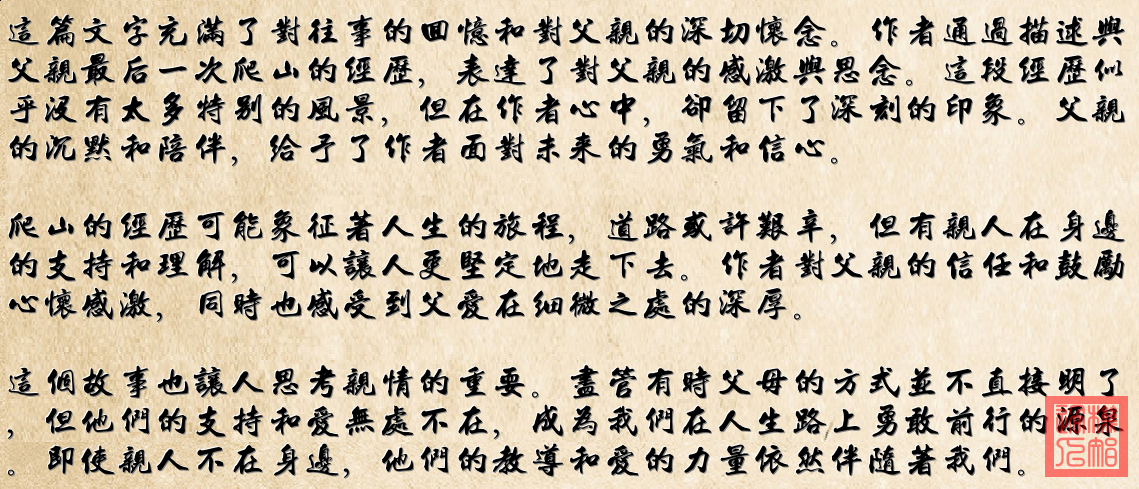 這篇文字充滿了對往事的回憶和對父親的深切懷念。作者通過描述與
父親最后一次爬山的經歷，表達了對父親的感激與思念。這段經歷似
乎沒有太多特別的風景，但在作者心中，卻留下了深刻的印象。父親
的沉默和陪伴，給予了作者面對未來的勇氣和信心。
爬山的經歷可能象征著人生的旅程，道路或許艱辛，但有親人在身邊
的支持和理解，可以讓人更堅定地走下去。作者對父親的信任和鼓勵
心懷感激，同時也感受到父愛在細微之處的深厚。
這個故事也讓人思考親情的重要。盡管有時父母的方式並不直接明了
，但他們的支持和愛無處不在，成為我們在人生路上勇敢前行的源泉
。即使親人不在身邊，他們的教導和愛的力量依然伴隨著我們。